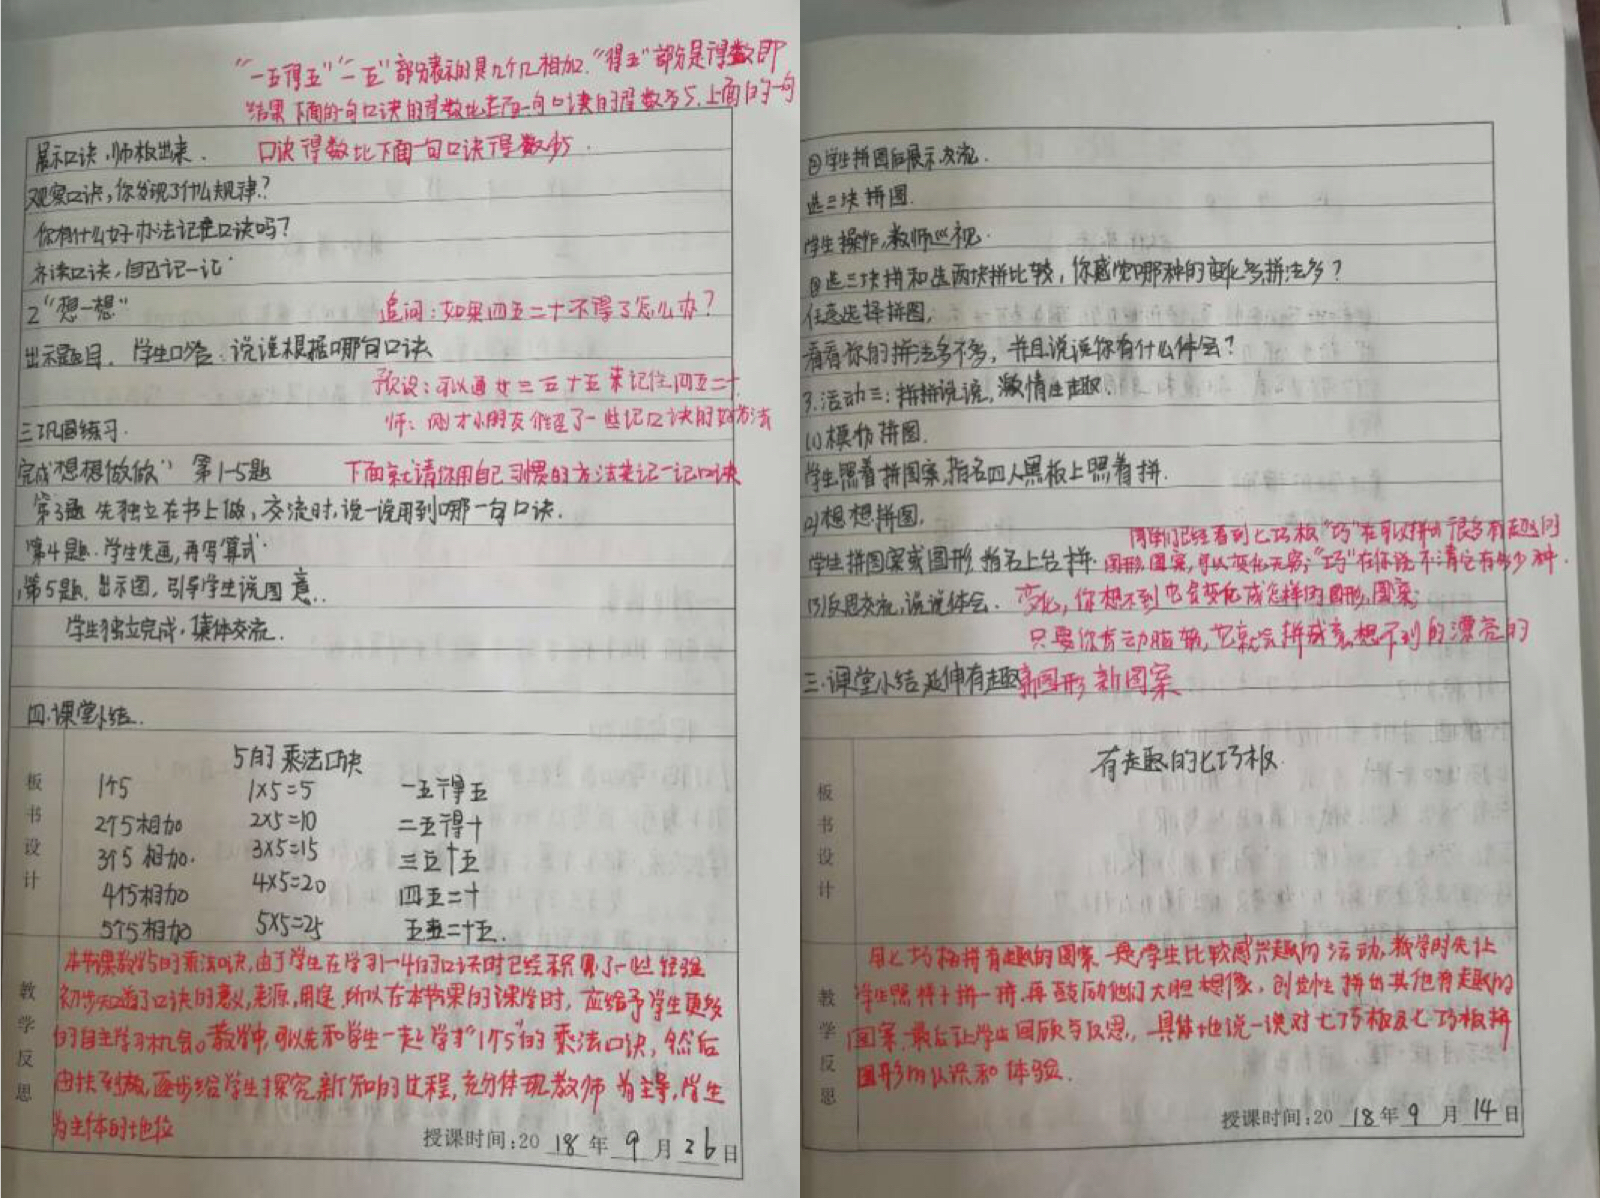 "一五得五""一五"部分表示的是几个几相加."得五"部分是得数即
结果 下面的一句口诀的得数比上面一句口诀的得数多5.上面的一句
口诀得数比下面一句口诀得数少5.
展示口诀,师板出来.
观察口诀,你发现了什么规律?
你有什么好办法记住口诀吗?
齐读口诀,自己记一记.
2"想一想"
追问:如果四五二十不得了怎么办?
出示题目. 学生口答:说说根据哪句口诀
预设:可以通过三五十五来记住四五二十.
师:刚才小朋友们 了一些记口诀的好方法
三巩固练习.
完成"想想做做" 第1-5题
下面就请你用自己习惯的方法来记一记口诀
第3题 先独立在书上做,交流时,说一说用到哪一句口诀.
第4题.学生先画,再写算式.
第5题.出示图,引导学生说图意..
学生独立完成.集体交流.
四.课堂小结.
板书设计
5的乘法口诀
1个5 1×5=5 一五得五
2个5相加 2×5=10 二五得十
3个5相加. 3×5=15 三五十五
4个5相加 4×5=20 四五二十
5个5相加 5×5=25 五五二十五.
教学反思
本节课教学5的乘法口诀,由于学生在学习1-4的口诀时已经积累了一些经验
初步知道了口诀的意义,来源,用途.所以在本节课的课堂时,应给予学生更多
的自主学习机会。教学中,可以先和学生一起学习"1个5"的乘法口诀,然后
由扶到放,逐步给学生探究新知的过程,充分体现教师为主导,学生
为主体的地位
授课时间:2018年9月26日
②学生拼图后展示交流.
选三块拼图.
学生操作,教师巡视.
③选三块拼和选两块拼比较,你感觉哪种的变化多拼法多?
任意选择拼图,
看看你的拼法多不多,并且说说你有什么体会?
3.活动三:拼拼说说,激情生趣.
(1)模仿拼图.
学生照着拼图案,指名四人黑板上照着拼.
(2)想想拼图.
同学们已经看到七巧板"巧"在可以拼出很多有趣的
学生拼图案或图形,指名上台拼.
图形,图案,可以变化无穷;"巧"在你说不清它有多少种
(3)反思交流,说说体会.
变化,你想不到它会变化成怎样的图形,图案;
只要你肯动脑筋,它就会拼成意想不到的漂亮的
三.课堂小结,延伸有趣
新图形 新图案
板书设计
有趣的七巧板.
教学反思
用七巧板拼有趣的图案 是学生比较感兴趣的活动,教学时先让
学生照样子拼一拼,再鼓励他们大胆想像,创造性拼出其他有趣的
图案,最后让学生回顾与反思,具体地说一说对七巧板及七巧板拼
图形的认识和体验.
授课时间:2018年9月14日